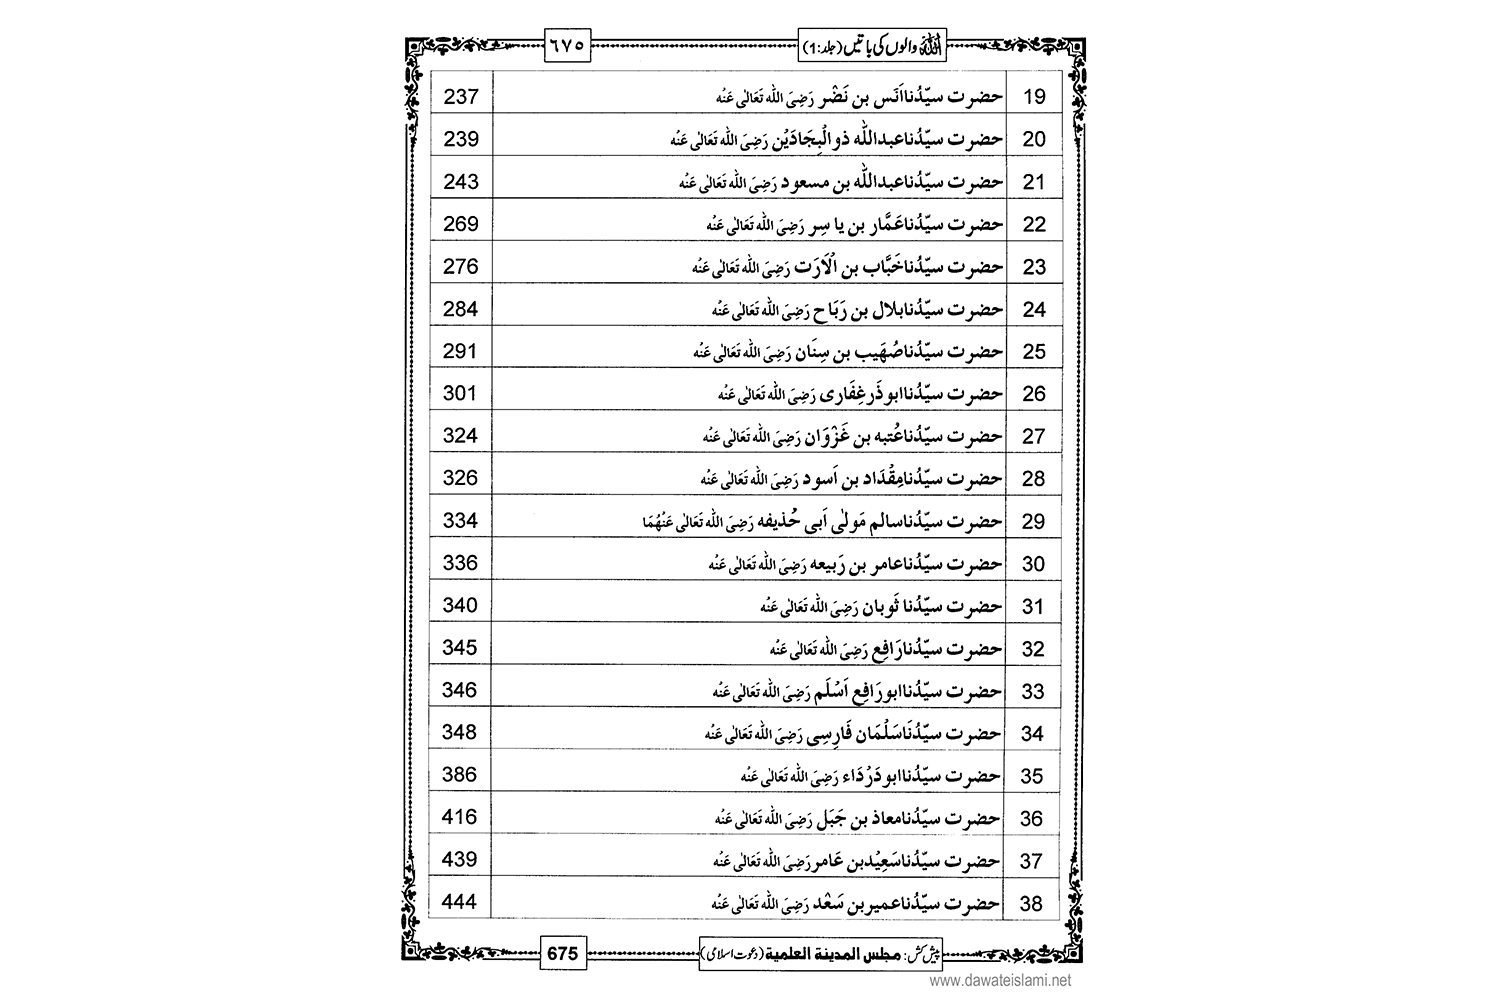 اللّٰہ والوں کی باتیں (جلد:1)
٦٧٥
19 حضرت سیّدُنااَنَس بن نَضْر رَضِیَ اللّٰہ تَعَالٰی عَنْہ 237
20 حضرت سیّدُناعبداللّٰہ ذوالْبِجَادَیْن رَضِیَ اللّٰہ تَعَالٰی عَنْہ 239
21 حضرت سیّدُناعبداللّٰہ بن مسعود رَضِیَ اللّٰہ تَعَالٰی عَنْہ 243
22 حضرت سیّدُناعَمَّار بن یاسِر رَضِیَ اللّٰہ تَعَالٰی عَنْہ 269
23 حضرت سیّدُناخَبَّاب بن الْاَرَت رَضِیَ اللّٰہ تَعَالٰی عَنْہ 276
24 حضرت سیّدُنابلال بن رَبَاح رَضِیَ اللّٰہ تَعَالٰی عَنْہ 284
25 حضرت سیّدُناصُهَیب بن سِنَان رَضِیَ اللّٰہ تَعَالٰی عَنْہ 291
26 حضرت سیّدُناابوذَرغِفَاری رَضِیَ اللّٰہ تَعَالٰی عَنْہ 301
27 حضرت سیّدُناعُتبه بن غَزْوَان رَضِیَ اللّٰہ تَعَالٰی عَنْہ 324
28 حضرت سیّدُنامِقْدَاد بن اَسود رَضِیَ اللّٰہ تَعَالٰی عَنْہ 326
29 حضرت سیّدُناسالم مَولٰی اَبی حُذیفه رَضِیَ اللّٰہ تَعَالٰی عَنْہُمَا 334
30 حضرت سیّدُناعامر بن رَبیعه رَضِیَ اللّٰہ تَعَالٰی عَنْہ 336
31 حضرت سیّدُنا ثَوبان رَضِیَ اللّٰہ تَعَالٰی عَنْہ 340
32 حضرت سیّدُنارَافِع رَضِیَ اللّٰہ تَعَالٰی عَنْہ 345
33 حضرت سیّدُناابورَافِع اَسْلَم رَضِیَ اللّٰہ تَعَالٰی عَنْہ 346
34 حضرت سیّدُنَاسَلْمَان فَارِسِی رَضِیَ اللّٰہ تَعَالٰی عَنْہ 348
35 حضرت سیّدُناابودَرْدَاء رَضِیَ اللّٰہ تَعَالٰی عَنْہ 386
36 حضرت سیّدُنامعاذ بن جَبَل رَضِیَ اللّٰہ تَعَالٰی عَنْہ 416
37 حضرت سیّدُناسَعِیْدبن عَامر رَضِیَ اللّٰہ تَعَالٰی عَنْہ 439
38 حضرت سیّدُناعمیربن سَعْد رَضِیَ اللّٰہ تَعَالٰی عَنْہ 444
پیش کش: مجلس المدینة العلمیة (دعوت اسلامی)
675
www.dawateislami.net